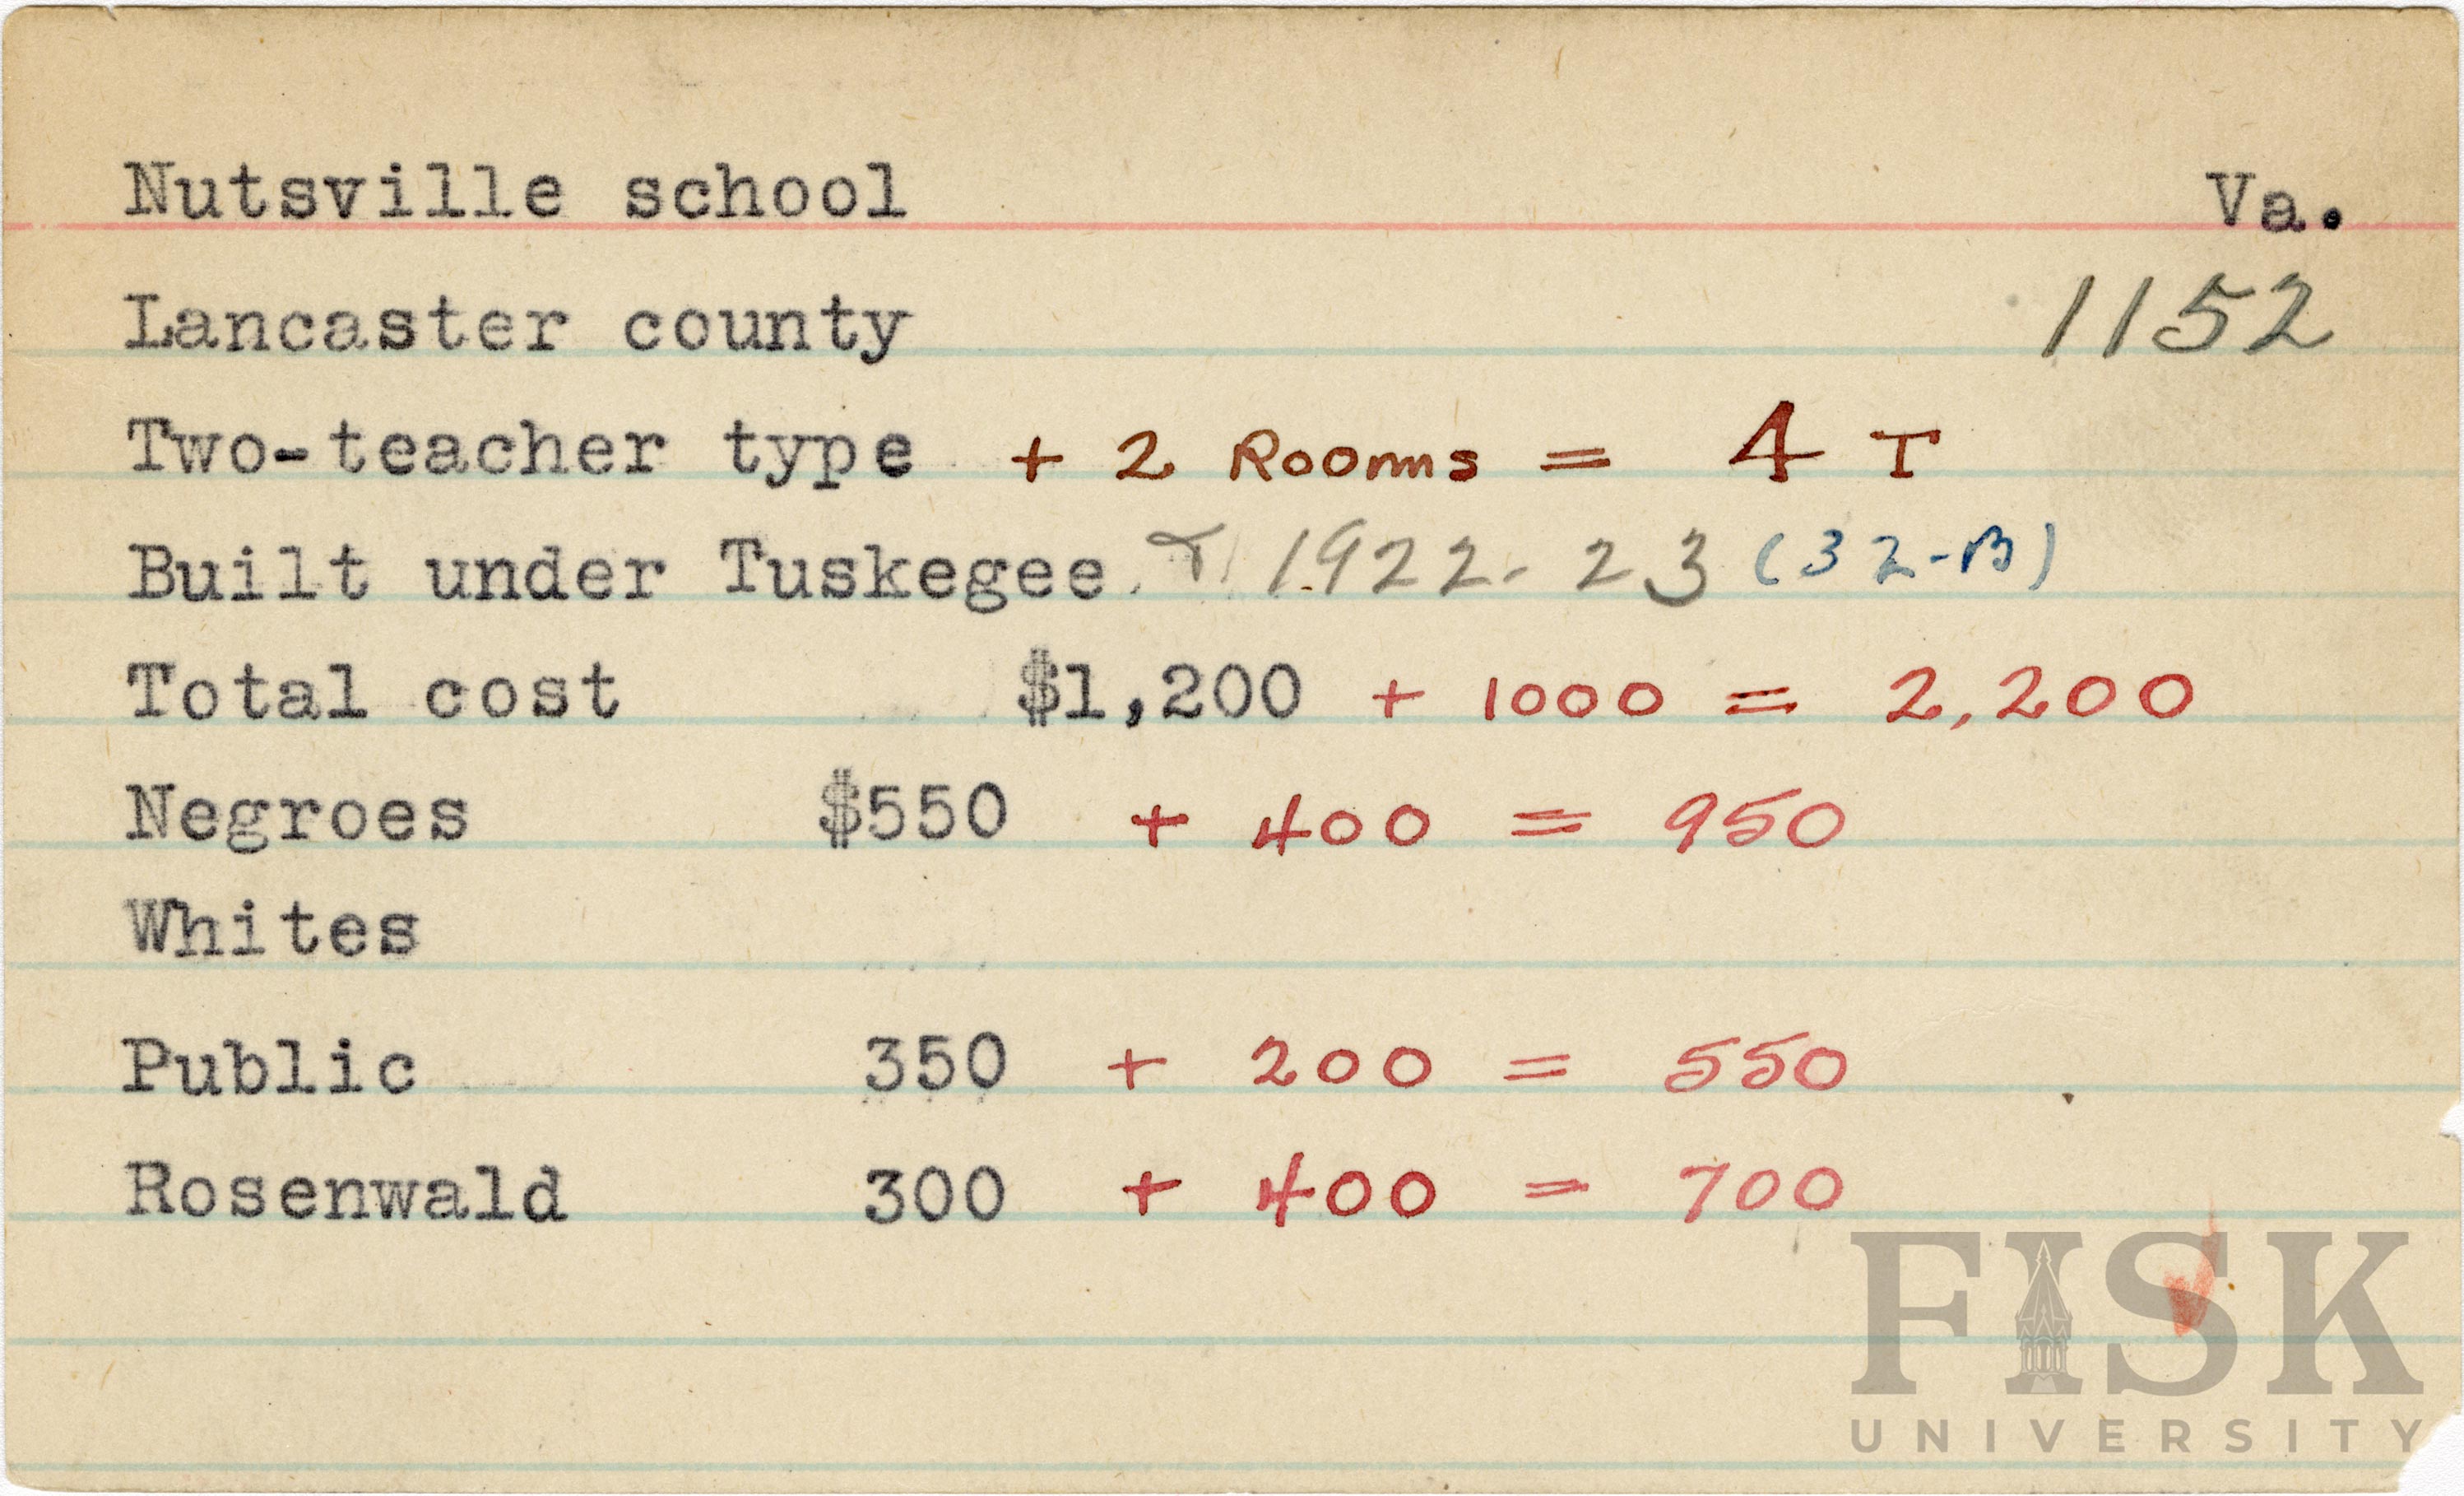 Nutsville school Va.
Lancaster county 1152
Two-teacher type + 2 Rooms = 4 T
Built under Tuskegee. 1922-23 (32-B)
Total cost $1,200 + 1000 = 2,200
Negroes $550 + 400 = 950
Whites
Public 350 + 200 = 550
Rosenwald 300 + 400 = 700
FISK
UNIVERSITY